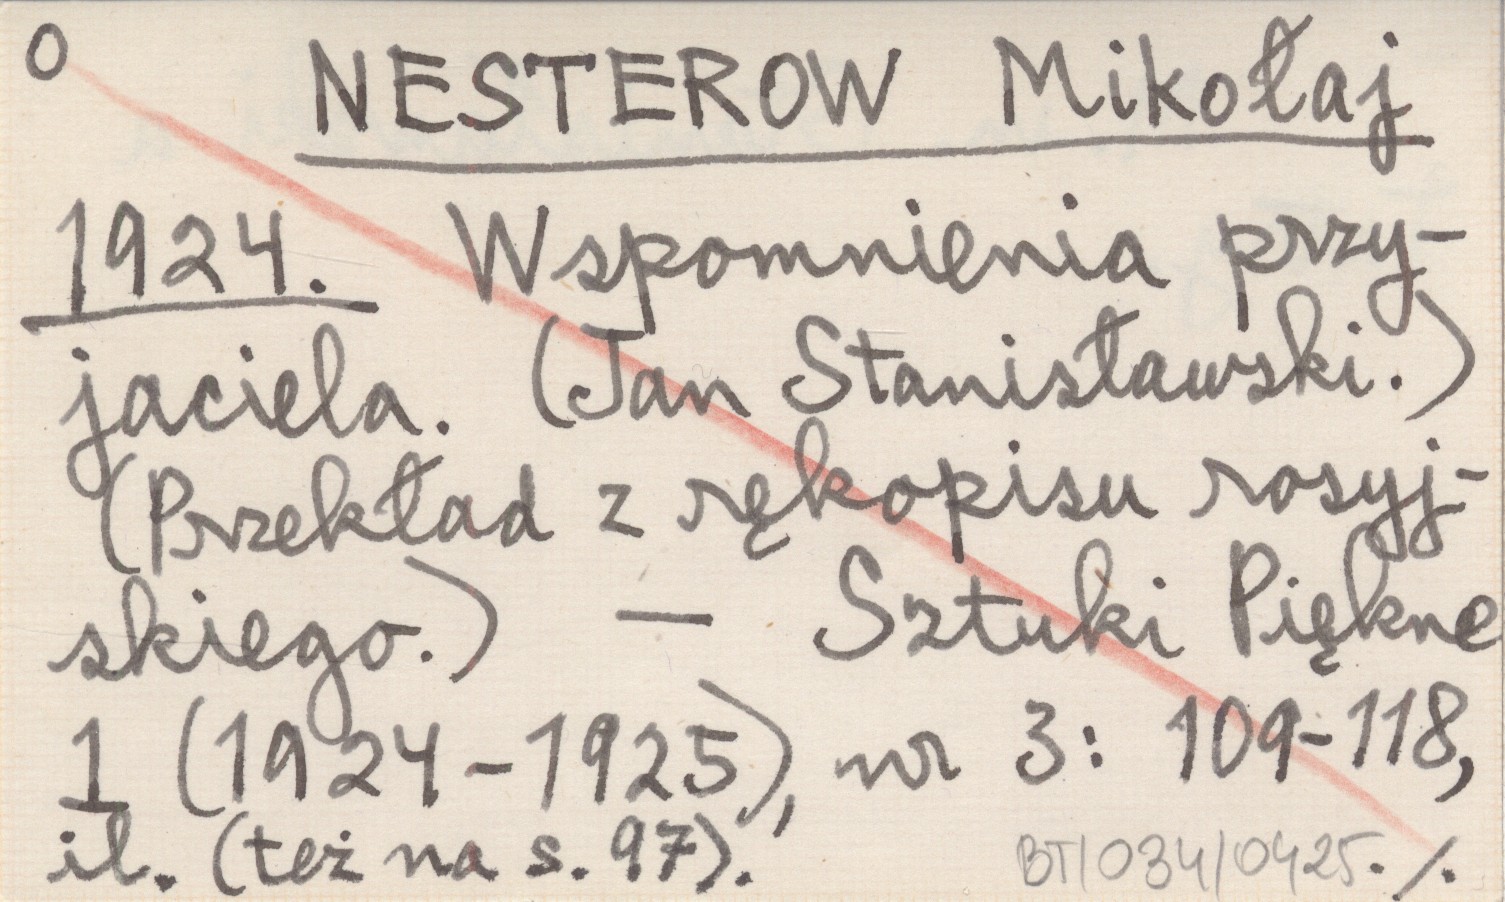 O
NESTEROW Mikołaj
1924. Wspomnienia przy-
jaciela. (Jan Stanisławski.)
(Przekład z rękopisu rosyj-
skiego.) — Sztuki Piękne
1 (1924-1925), nr 3: 109-118,
il. (też na s. 97).
BT/034/0425. ./.